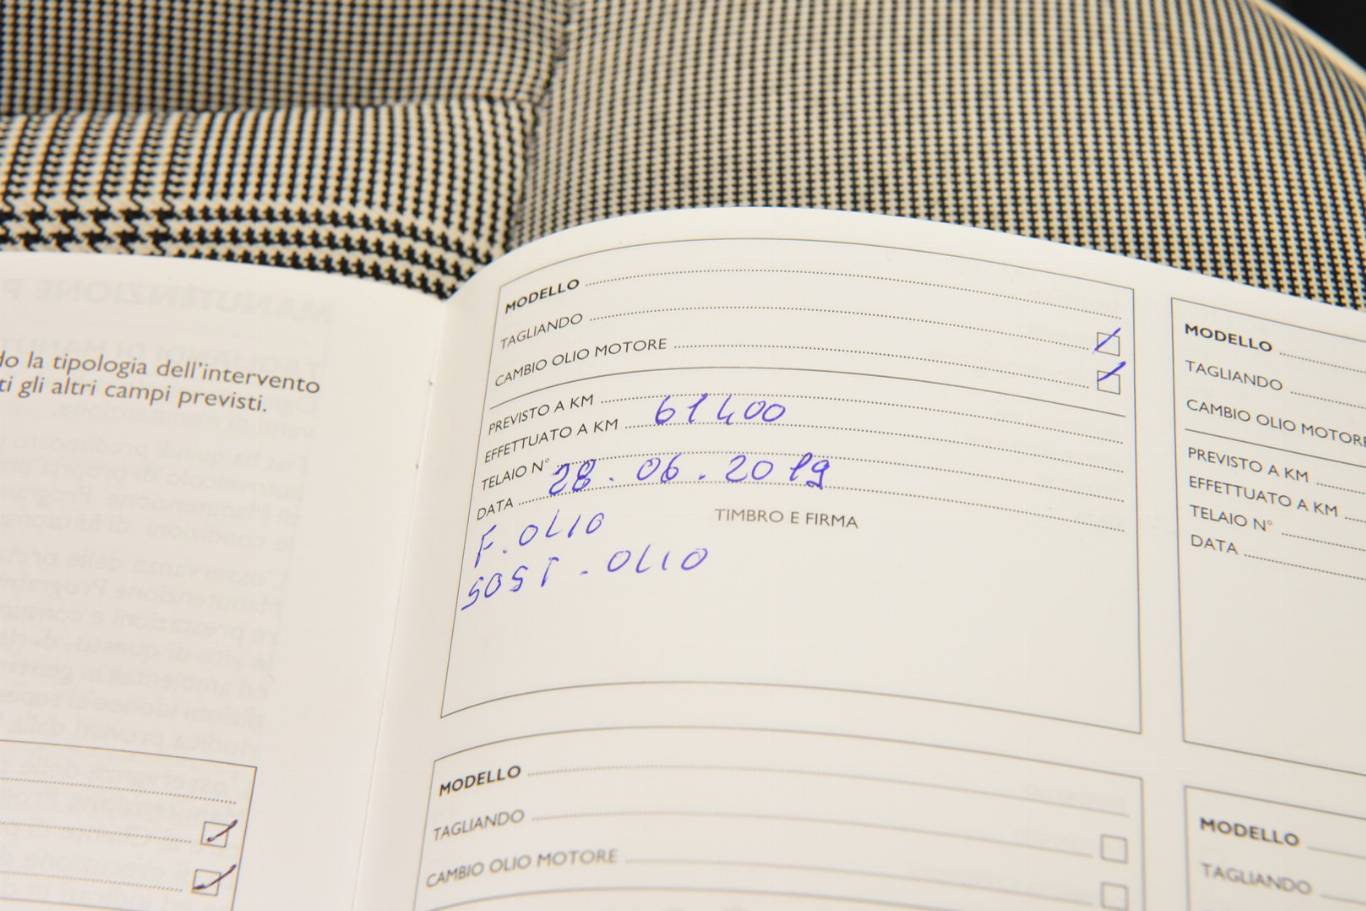 do la tipologia dell'intervento
ti gli altri campi previsti.
MODELLO
TAGLIANDO
CAMBIO OLIO MOTORE
PREVISTO A KM
EFFETTUATO A KM 61400
TELAIO N°
DATA 28.06.2019
TIMBRO E FIRMA
F. OLIO
SOST. OLIO
MODELLO
TAGLIANDO
CAMBIO OLIO MOTORE
MODELLO
TAGLIANDO
CAMBIO OLIO MOTORE
PREVISTO A KM
EFFETTUATO A KM
TELAIO N°
DATA
MODELLO
TAGLIANDO